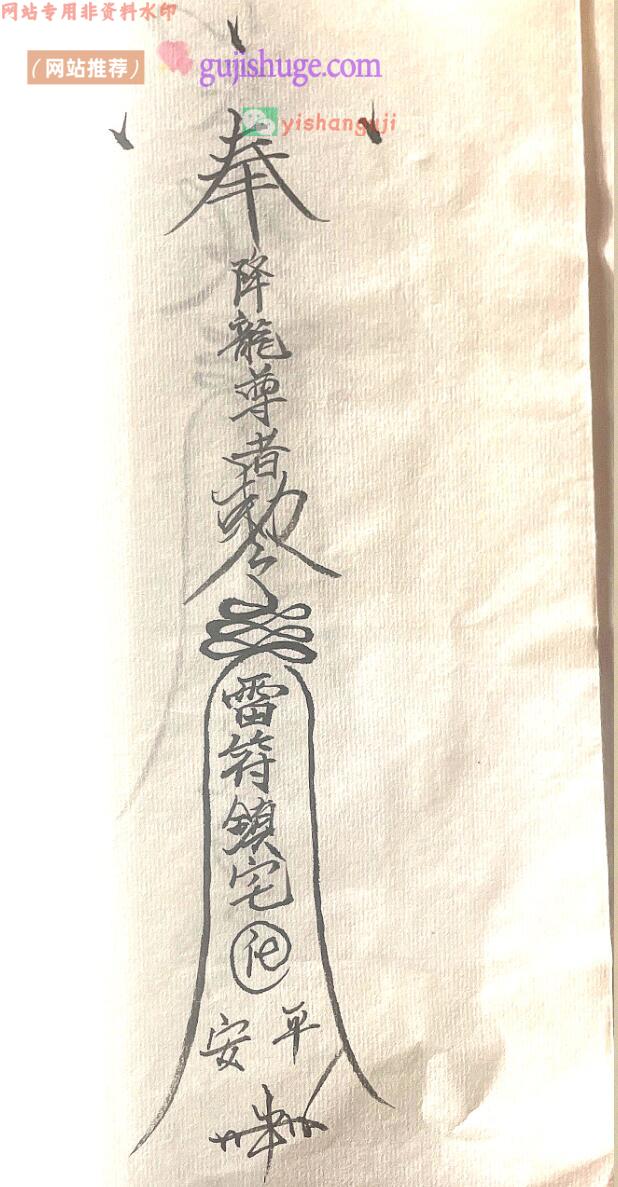 网站专用非资料水印
（网站推荐）
gujishuge.com
yishanguji
奉
降龍尊者勅令
雷符鎮宅
化
平安